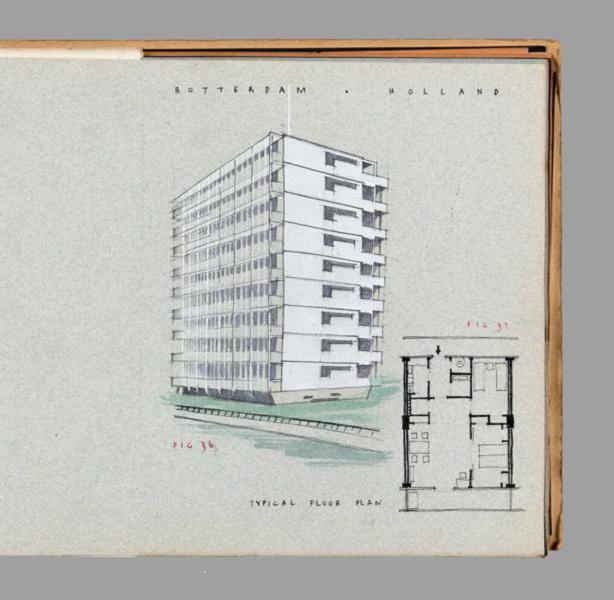 ROTTERDAM . HOLLAND
FIG 37
FIG 36
TYPICAL FLOOR PLAN